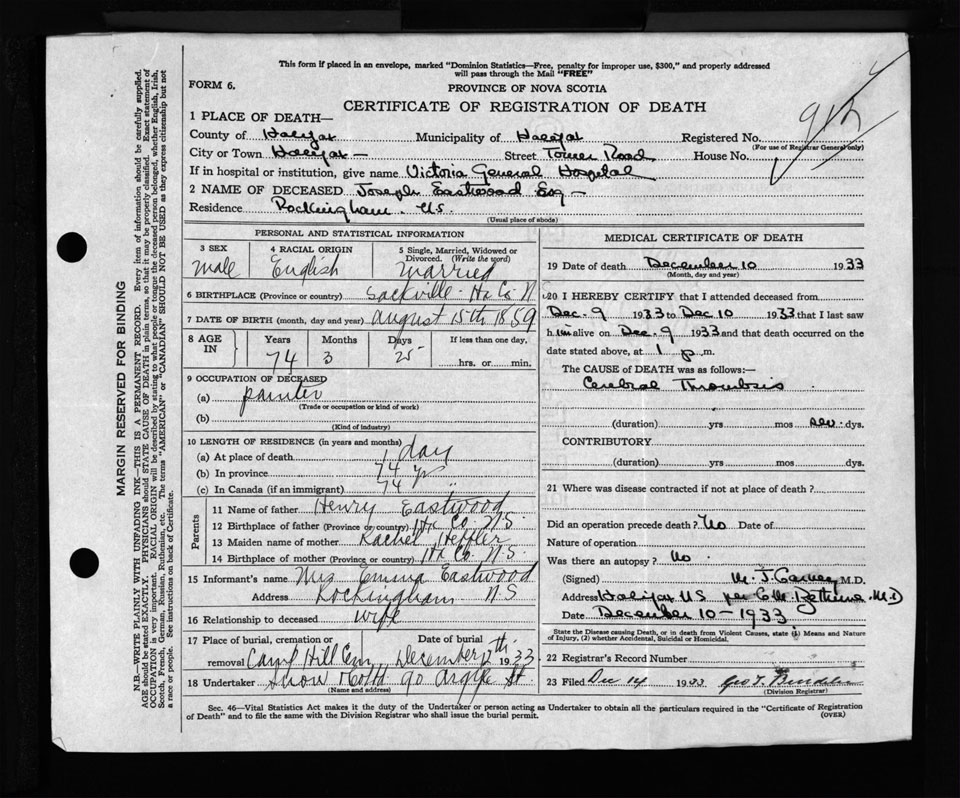 This form if placed in an envelope, marked "Dominion Statistics—Free, penalty for improper use, $300," and properly addressed
will pass through the Mail "FREE"
FORM 6.
PROVINCE OF NOVA SCOTIA
CERTIFICATE OF REGISTRATION OF DEATH
1 PLACE OF DEATH—
County of Halifax Municipality of Halifax Registered No.
(For use of Registrar General only)
City or Town Halifax — Street Tower Road House No.
If in hospital or institution, give name Victoria General Hospital
2 NAME OF DECEASED Joseph Eastwood Esq —
Residence Rockingham. N.S.
(Usual place of abode)
PERSONAL AND STATISTICAL INFORMATION
3 SEX 4 RACIAL ORIGIN 5 Single, Married, Widowed or Divorced. (Write the word)
Male English Married
6 BIRTHPLACE (Province or country) Sackville Hx Co N
7 DATE OF BIRTH (month, day and year) August 15th 1859
8 AGE IN Years Months Days If less than one day,
74 3 25 hrs. or min.
9 OCCUPATION OF DECEASED
(a) painter
(Trade or occupation or kind of work)
(b)
(Kind of industry)
10 LENGTH OF RESIDENCE (in years and months)
(a) At place of death 1 day
(b) In province 74 yr
(c) In Canada (if an immigrant) 74 "
Parents
11 Name of father Henry Eastwood
12 Birthplace of father (Province or country) Hx Co. N.S.
13 Maiden name of mother Rachel Heffler
14 Birthplace of mother (Province or country) Hx Co. N.S.
15 Informant's name Mrs Emma Eastwood
Address Rockingham. N.S
16 Relationship to deceased wife
17 Place of burial, cremation or removal Date of burial
Camp Hill Cem December 12th 1933
18 Undertaker Snow & Co Ltd 90 Argyle St.
(Name and address)
MEDICAL CERTIFICATE OF DEATH
19 Date of death December 10 1933
(Month, day and year)
20 I HEREBY CERTIFY that I attended deceased from
Dec. 9 1933 to Dec 10 1933 that I last saw
him alive on Dec. 9 1933 and that death occurred on the
date stated above, at 1 p.m.
The CAUSE of DEATH was as follows:—
Cerebral Thrombosis
(duration) yrs mos sev. dys.
CONTRIBUTORY
(duration) yrs mos dys.
21 Where was disease contracted if not at place of death?
Did an operation precede death? No Date of
Nature of operation
Was there an autopsy? No.
(Signed) M. J. Carney M.D.
Address Halifax NS per C M Bethune M.D
Date December 10 - 1933
State the Disease causing Death, or in death from Violent Causes, state (1) Means and Nature
of Injury, (2) whether Accidental, Suicidal or Homicidal.
22 Registrar's Record Number
23 Filed Dec 14 1933 Geo T.
(Division Registrar)
Sec. 46—Vital Statistics Act makes it the duty of the Undertaker or person acting as Undertaker to obtain all the particulars required in the "Certificate of Registration
of Death" and to file the same with the Division Registrar who shall issue the burial permit.
(OVER)
MARGIN RESERVED FOR BINDING
N.B.—WRITE PLAINLY WITH UNFADING INK—THIS IS A PERMANENT RECORD. Every item of information should be carefully supplied.
AGE should be stated EXACTLY. PHYSICIANS should STATE CAUSE OF DEATH in plain terms, so that it may be properly classified. Exact statement of
OCCUPATION is very important. RACIAL ORIGIN will be described by stating to what people or tongue the deceased person belonged, whether English, Irish,
Scotch, French, German, Russian, Ruthenian, etc. The terms "AMERICAN" or "CANADIAN" SHOULD NOT BE USED as they express citizenship but not
a race or people. See instructions on back of Certificate.